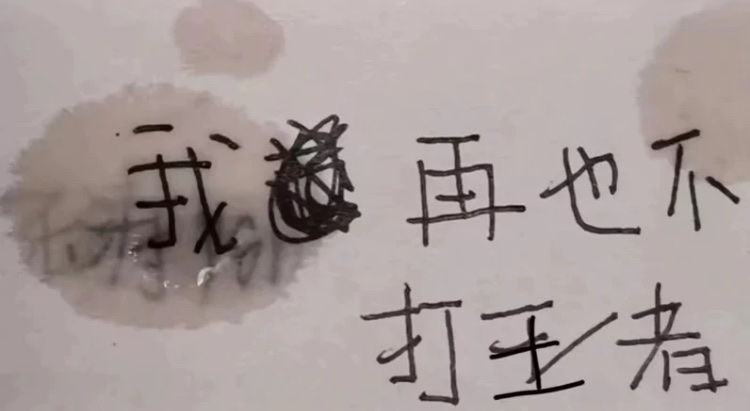 我再也不
打王者